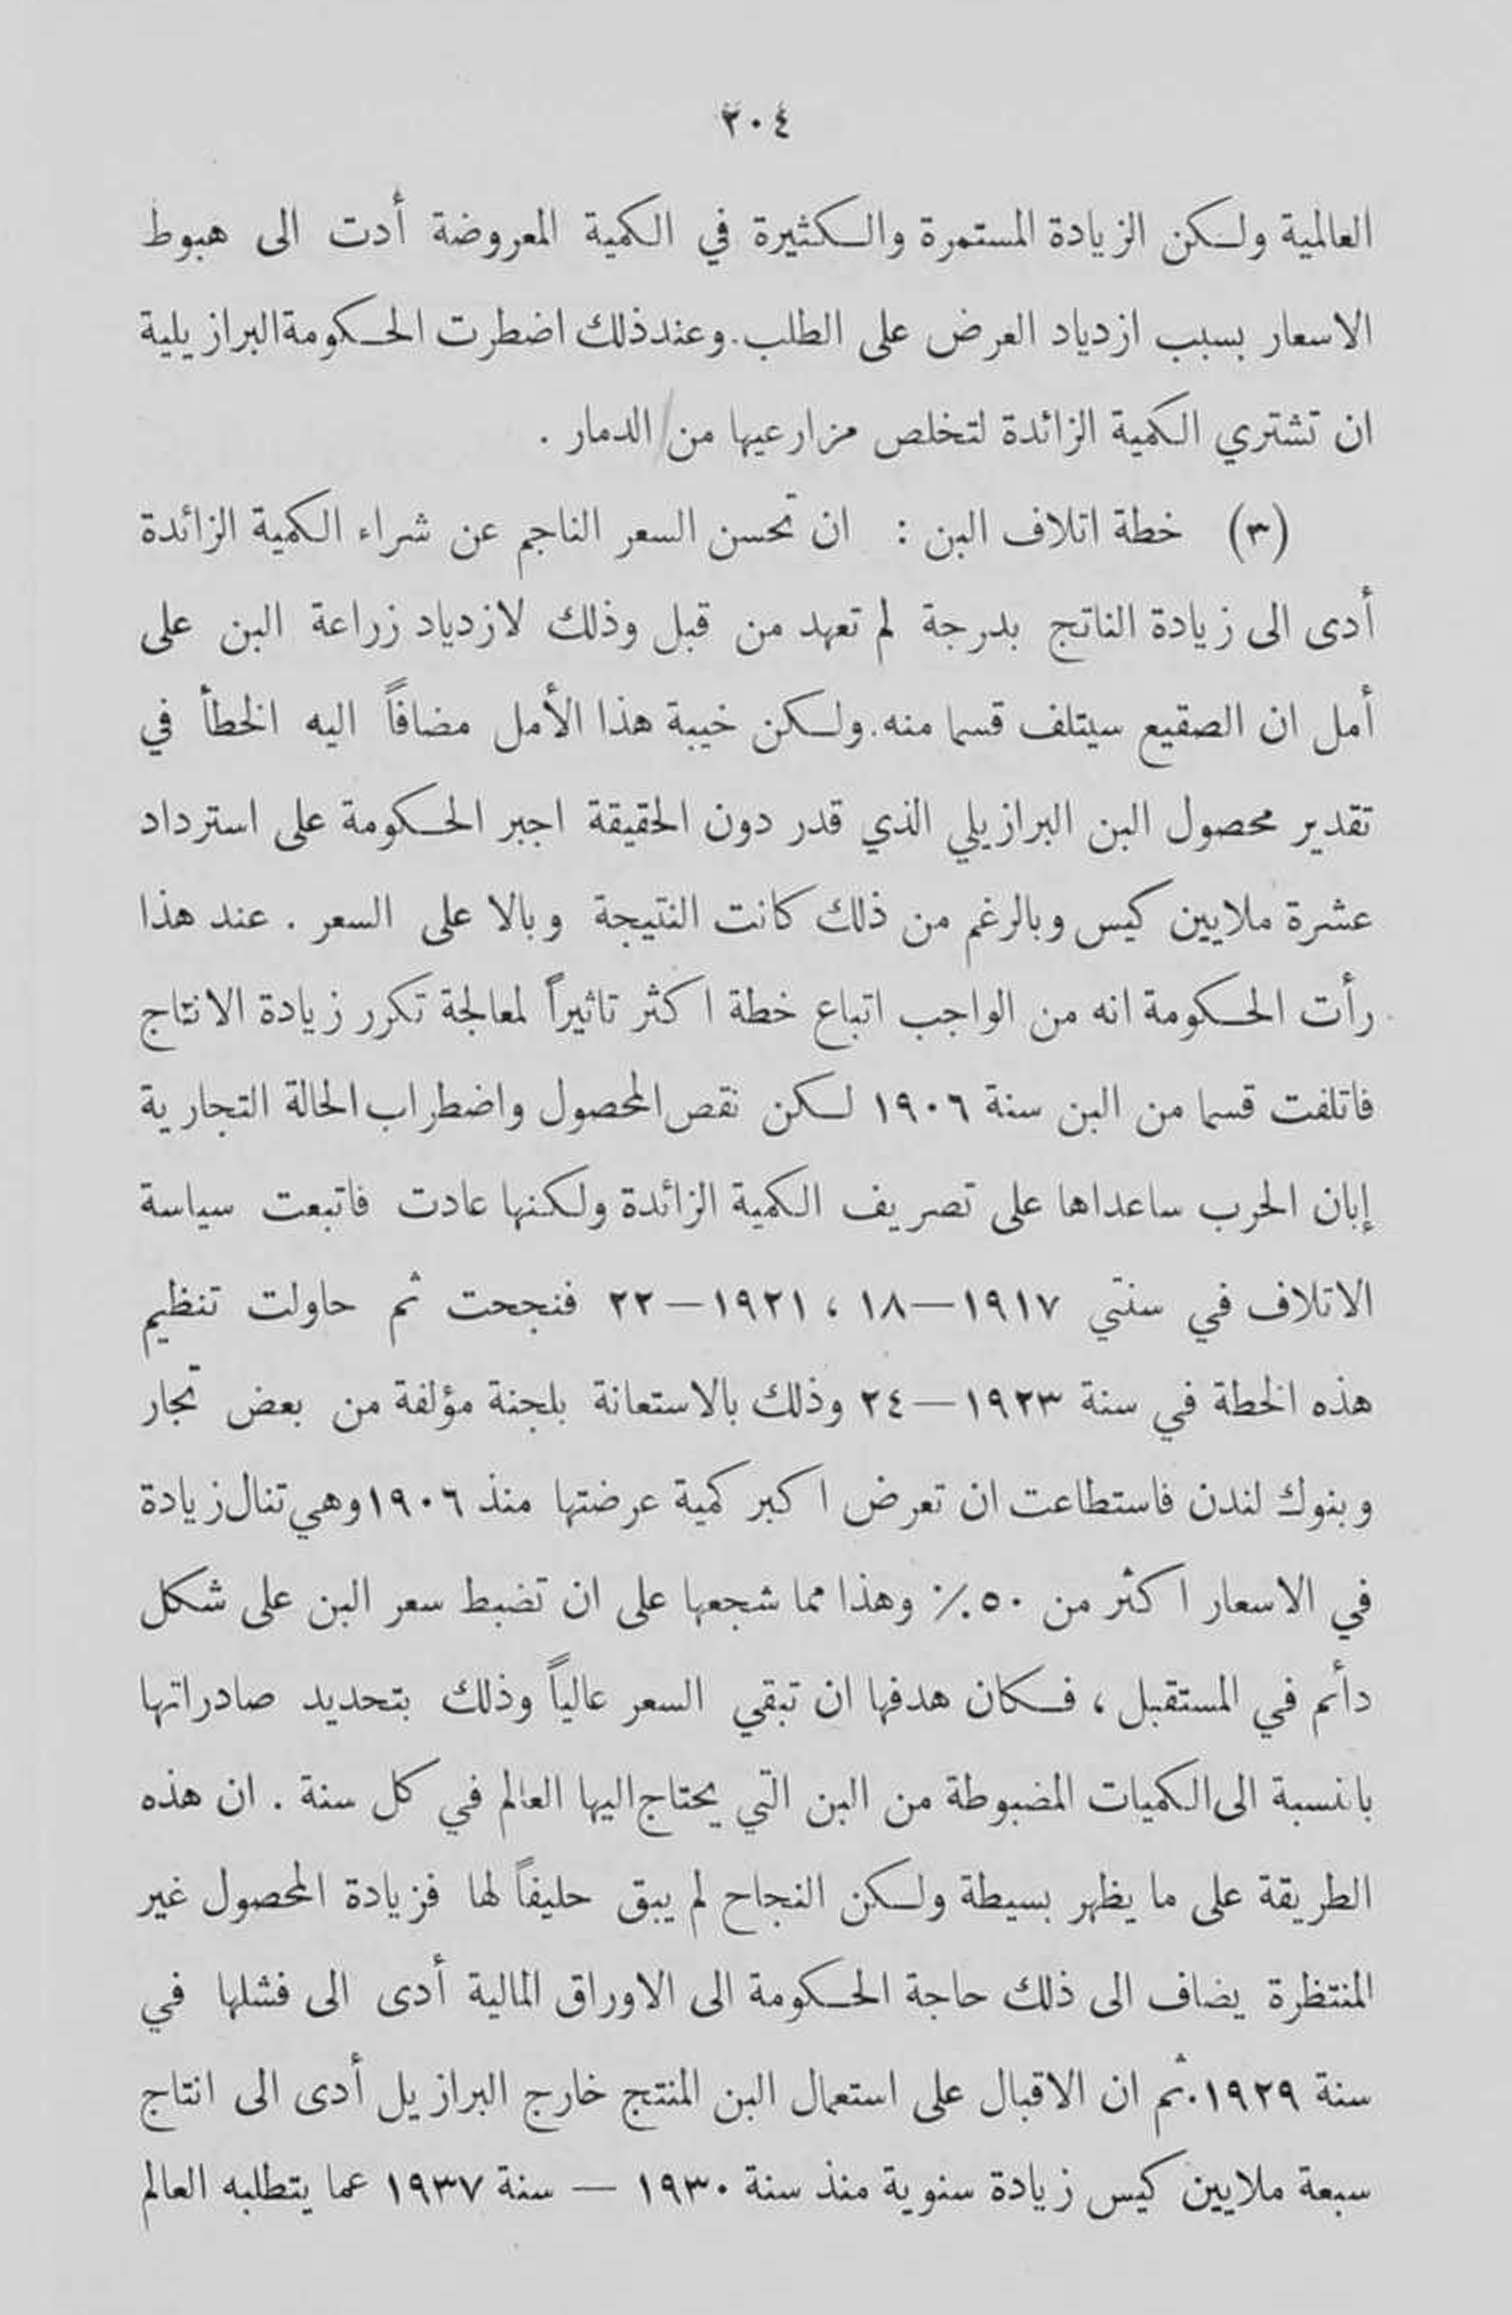 ٢٠٤
العالمية ولكن الزيادة المستمرة والكثيرة في الكمية المعروضة أدت الى هبوط
الاسعار بسبب ازدياد العرض على الطلب. وعند ذلك اضطرت الحكومة البرازيلية
ان تشتري الكمية الزائدة لتخلص مزارعيها من الدمار .
(٣) خطة اتلاف البن : ان تحسن السعر الناجم عن شراء الكمية الزائدة
أدى الى زيادة الناتج بدرجة لم تعهد من قبل وذلك لازدياد زراعة البن على
أمل ان الصقيع سيتلف قسما منه. ولكن خيبة هذا الأمل مضافاً اليه الخطأ في
تقدير محصول البن البرازيلي الذي قدر دون الحقيقة اجبر الحكومة على استرداد
عشرة ملايين كيس وبالرغم من ذلك كانت النتيجة وبالا على السعر . عند هذا
رأت الحكومة انه من الواجب اتباع خطة اكثر تاثيراً لمعالجة تكرر زيادة الانتاج
فاتلفت قسما من البن سنة ١٩٠٦ لكن نقص المحصول واضطراب الحالة التجارية
إبان الحرب ساعداها على تصريف الكمية الزائدة ولكنها عادت فاتبعت سياسة
الاتلاف في سنتي ١٩١٧—١٨ ، ١٩٢١—٢٢ فنجحت ثم حاولت تنظيم
هذه الخطة في سنة ١٩٢٣—٢٤ وذلك بالاستعانة بلجنة مؤلفة من بعض تجار
وبنوك لندن فاستطاعت ان تعرض اكبر كمية عرضتها منذ ١٩٠٦ وهي تنال زيادة
في الاسعار اكثر من ٥٠٪ وهذا مما شجعها على ان تضبط سعر البن على شكل
دأئم في المستقبل ، فكان هدفها ان تبقي السعر عالياً وذلك بتحديد صادراتها
بانسبة الى الكميات المضبوطة من البن التي يحتاج اليها العالم في كل سنة . ان هذه
الطريقة على ما يظهر بسيطة ولكن النجاح لم يبق حليفاً لها فزيادة المحصول غير
المنتظرة يضاف الى ذلك حاجة الحكومة الى الاوراق المالية أدى الى فشلها في
سنة ١٩٢٩. ثم ان الاقبال على استعمال البن المنتج خارج البرازيل أدى الى انتاج
سبعة ملايين كيس زيادة سنوية منذ سنة ١٩٣٠ — سنة ١٩٣٧ عما يتطلبه العالم